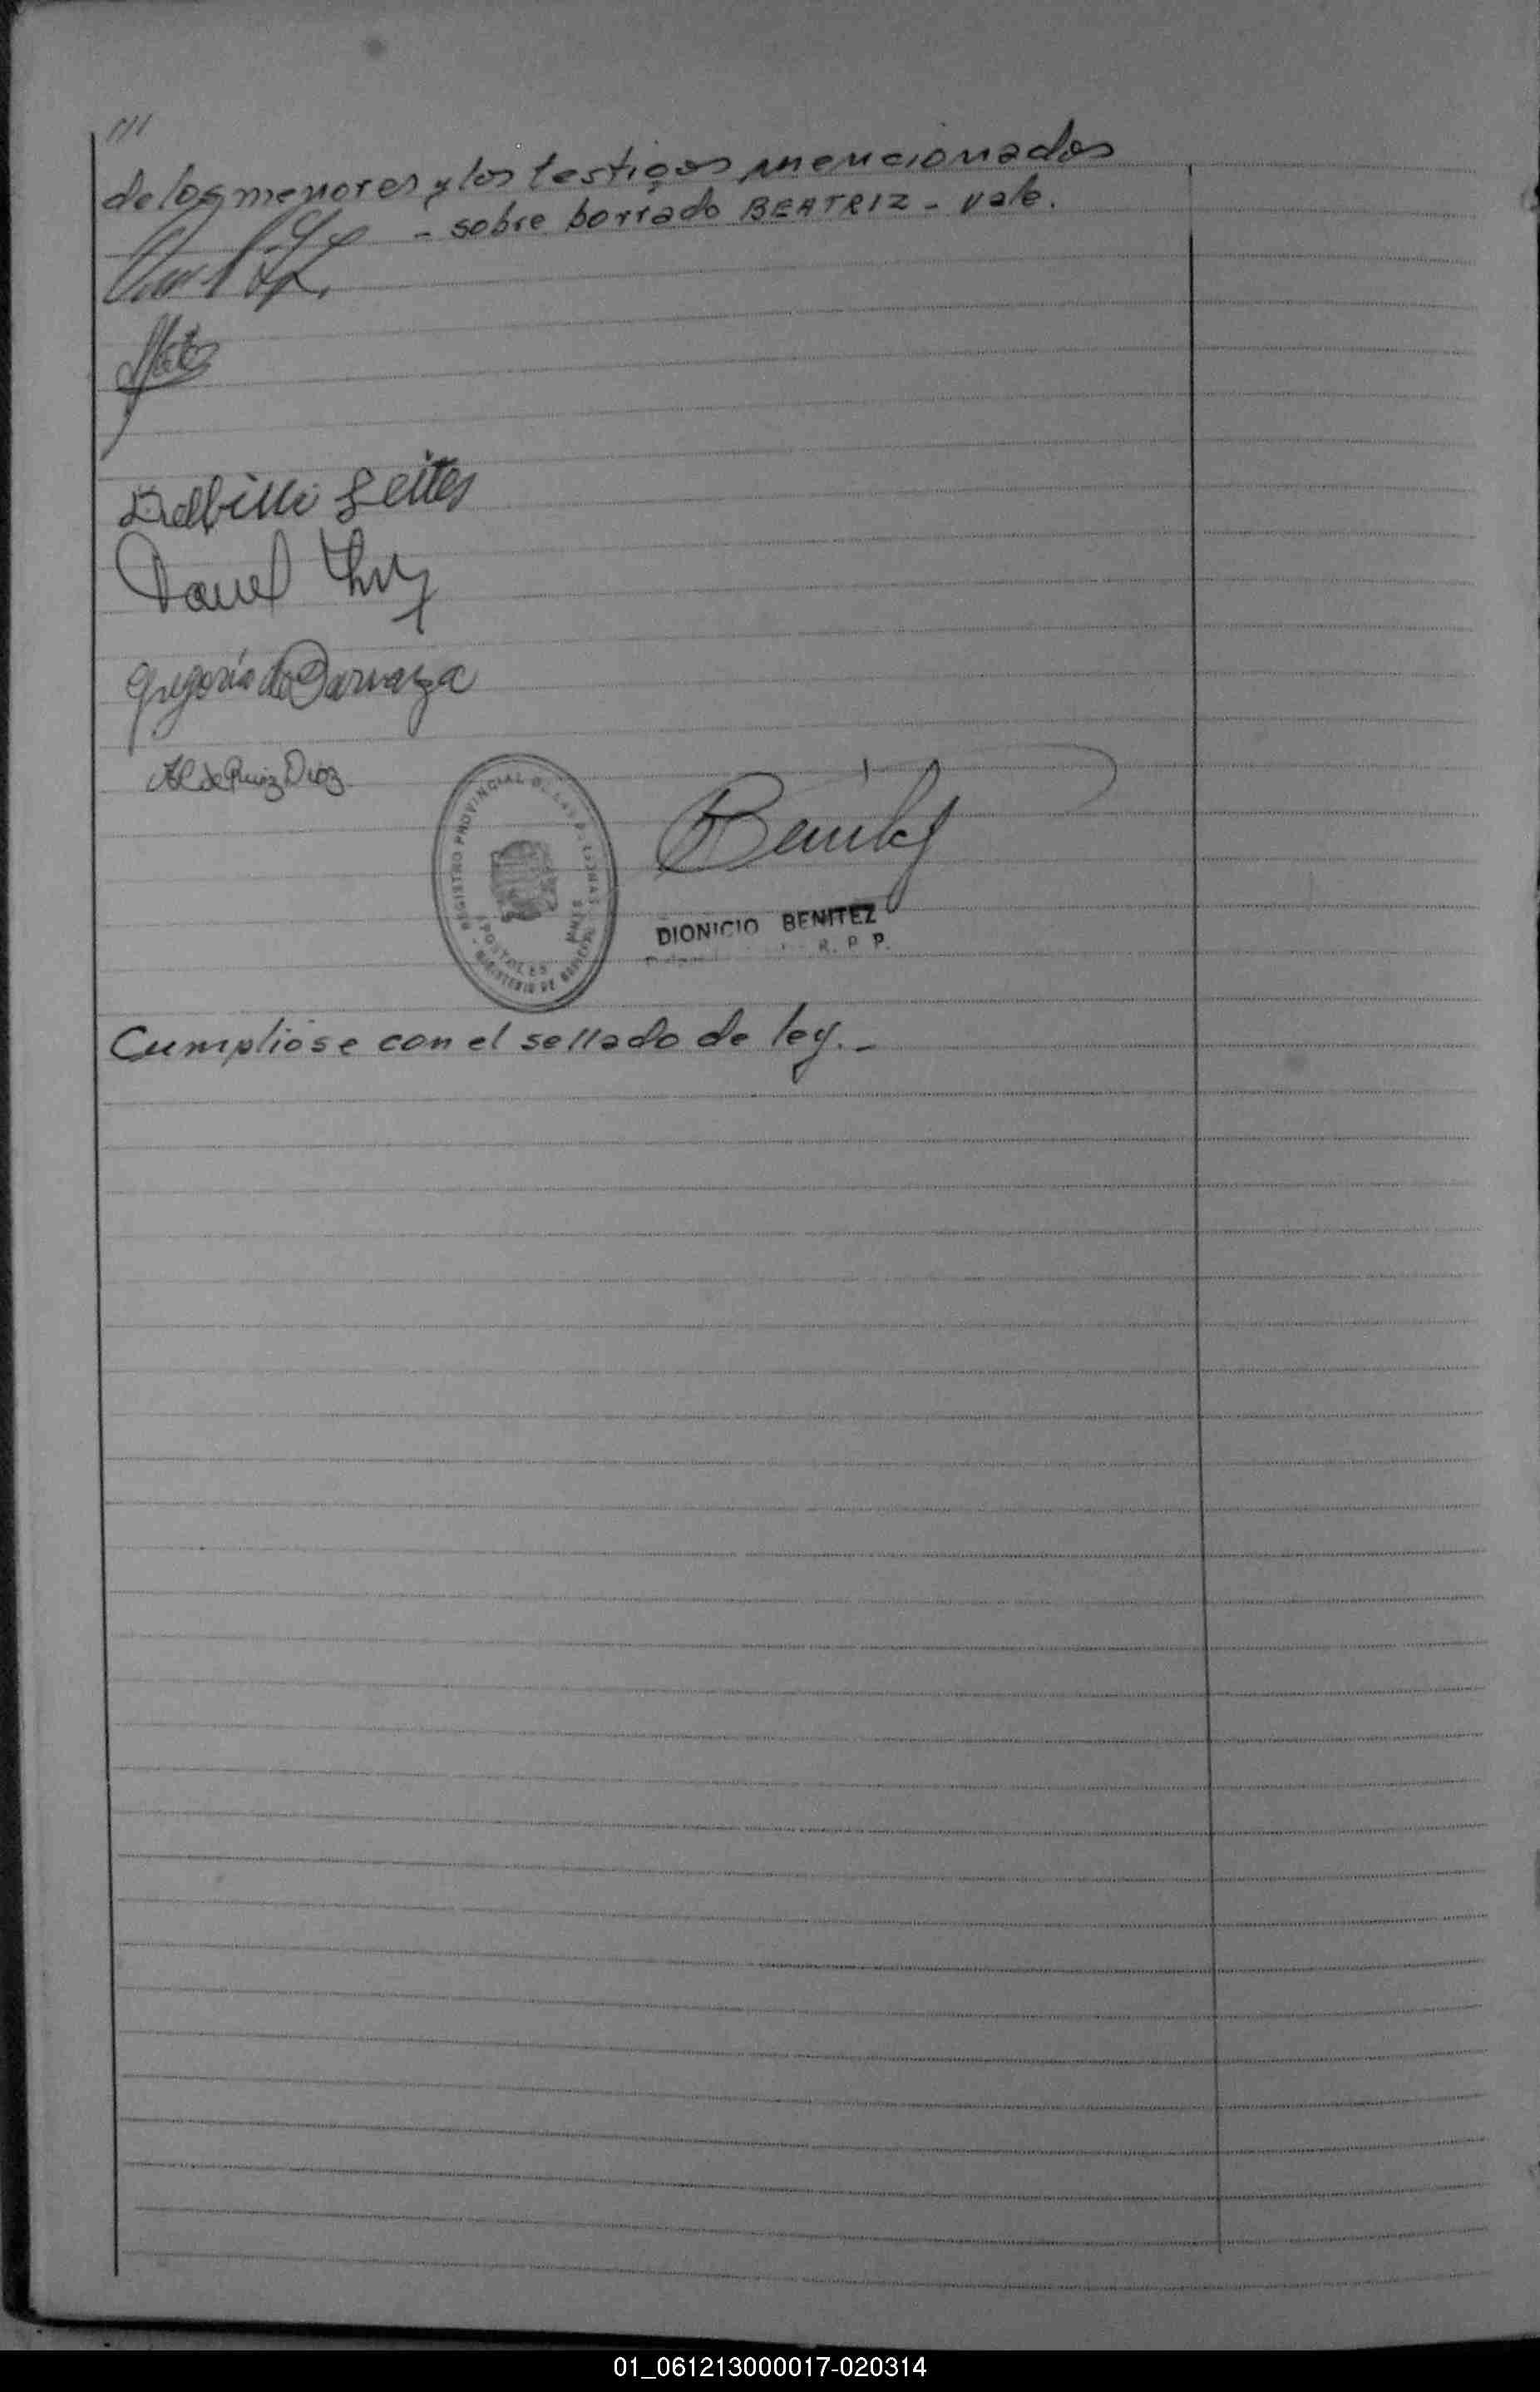 ///
de los menores y los testigos mencionados
- sobre borrado BEATRIZ - vale.
Leites
Daniel
Gregoria de Barraza
de Ruiz Diaz
REGISTRO PROVINCIAL DE LAS PERSONAS
APOSTOLES MNES
MINISTERIO DE
Benitez
DIONICIO BENITEZ
R. P. P.
Cumpliose con el sellado de ley. -
01_061213000017-020314